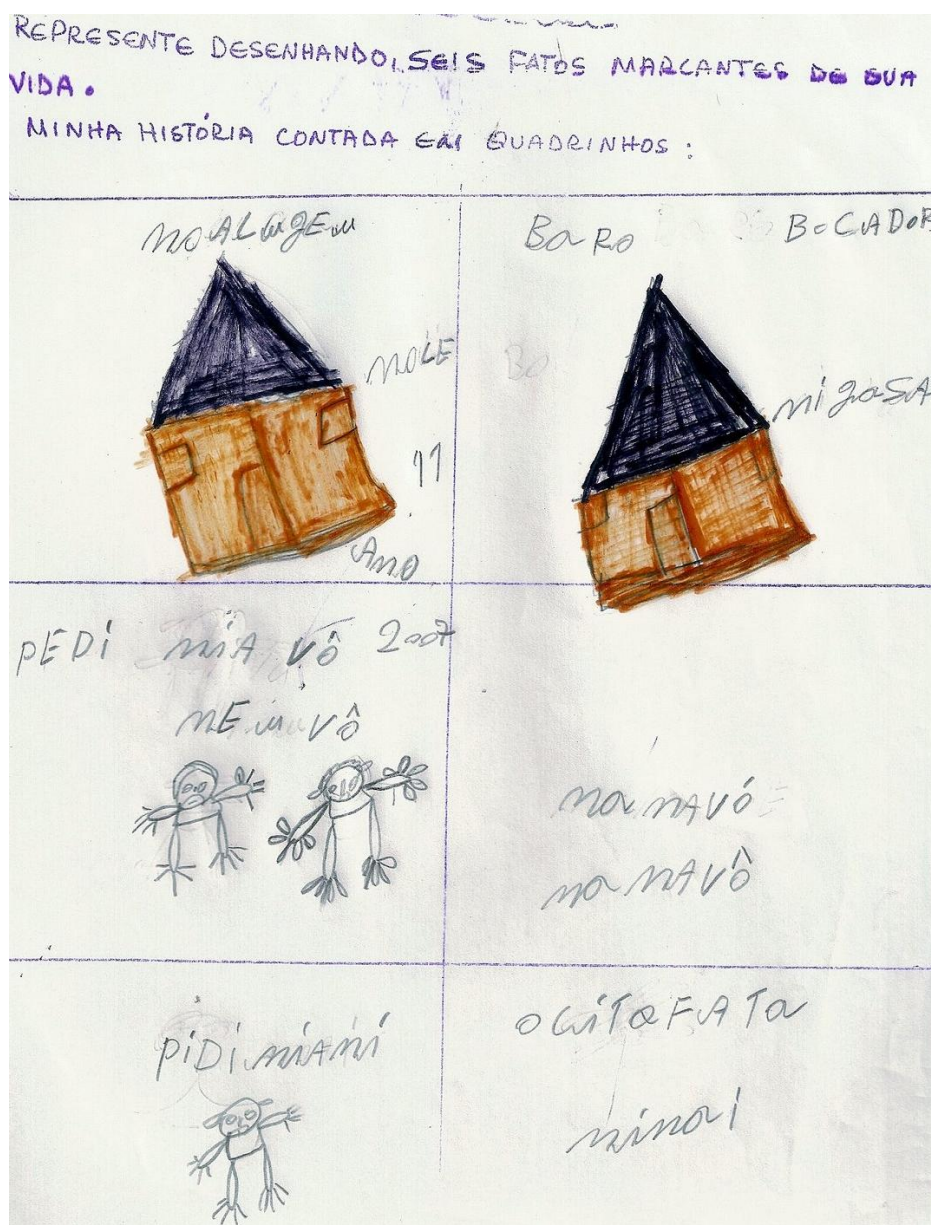 REPRESENTE DESENHANDO, SEIS FATOS MARCANTES DE SUA
VIDA.
MINHA HISTÓRIA CONTADA EM QUADRINHOS:
MOALUGEM
MOLE
11
ANO
BaRO BOCADOR
Bo
MIGASA
PEDI MIA VÔ 2007
MEU VÔ
MAVÓ
MAVÔ
PIDI MIAMI